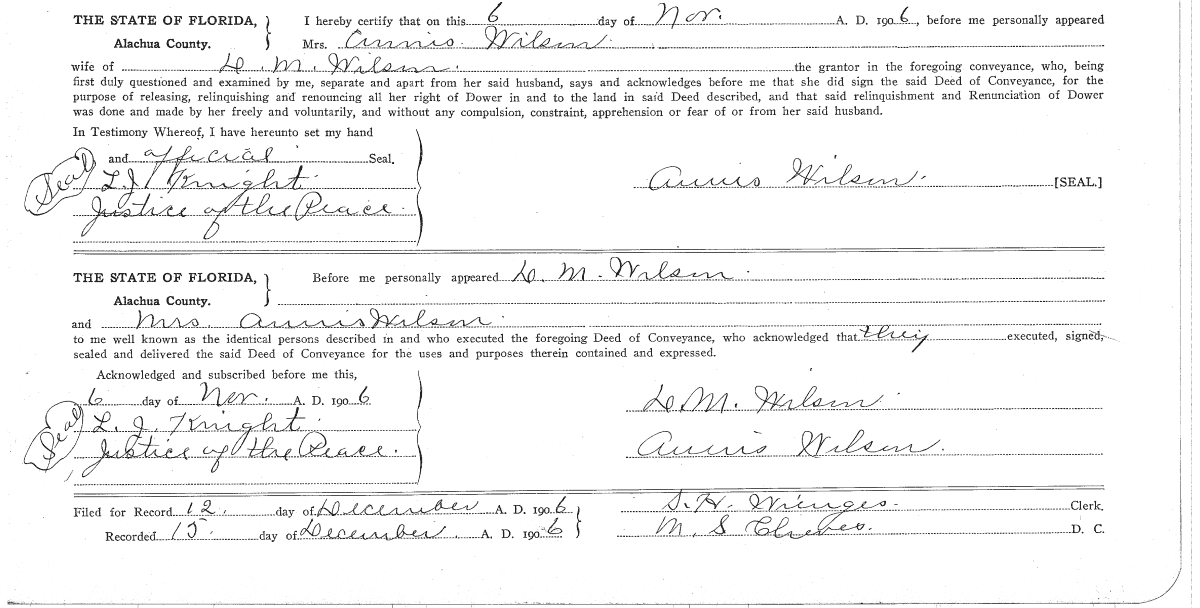 THE STATE OF FLORIDA, I hereby certify that on this 6 day of Nov. A. D. 1906, before me personally appeared
Alachua County. Mrs. Annis Wilson
wife of D. M. Wilson. the grantor in the foregoing conveyance, who, being
first duly questioned and examined by me, separate and apart from her said husband, says and acknowledges before me that she did sign the said Deed of Conveyance, for the
purpose of releasing, relinquishing and renouncing all her right of Dower in and to the land in said Deed described, and that said relinquishment and Renunciation of Dower
was done and made by her freely and voluntarily, and without any compulsion, constraint, apprehension or fear of or from her said husband.
In Testimony Whereof, I have hereunto set my hand
and official Seal.
Seal L. J. Knight Annis Wilson. [SEAL.]
Justice of the Peace.
THE STATE OF FLORIDA, Before me personally appeared D. M. Wilson.
Alachua County.
and Mrs. Annis Wilson
to me well known as the identical persons described in and who executed the foregoing Deed of Conveyance, who acknowledged that they executed, signed,
sealed and delivered the said Deed of Conveyance for the uses and purposes therein contained and expressed.
Acknowledged and subscribed before me this,
6 day of Nov. A. D. 1906 D. M. Wilson
Seal L. J. Knight
Justice of the Peace. Annis Wilson.
Filed for Record 12. day of December A. D. 1906 S. H. Wienges. Clerk.
Recorded 15 day of December. A. D. 1906 M. S. Cheves. D. C.